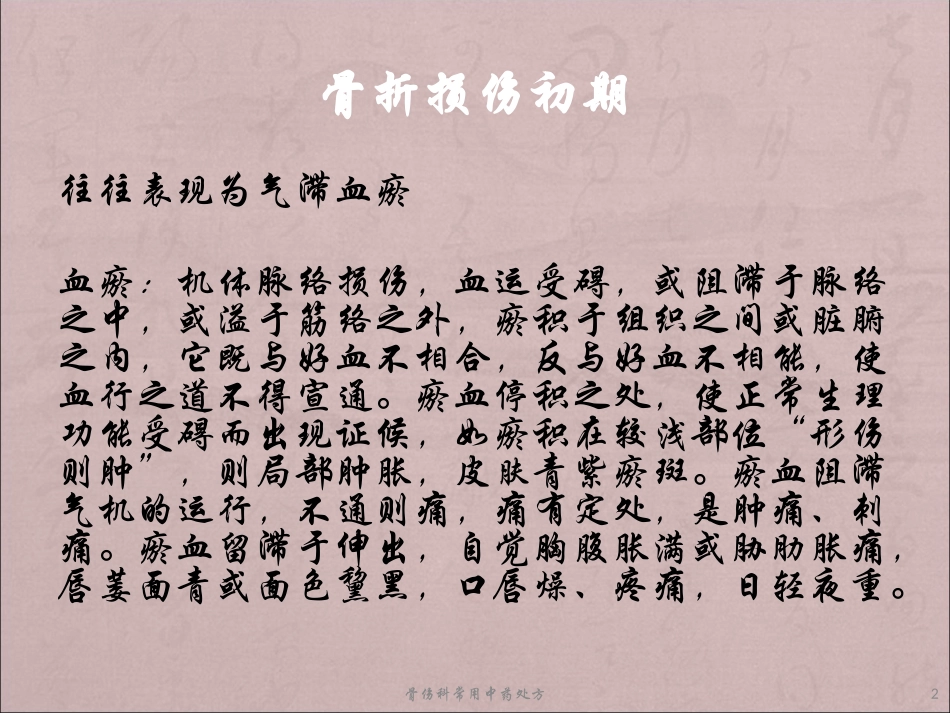 骨折损伤初期
往往表现为气滞血瘀
血瘀：机体脉络损伤，血运受碍，或阻滞于脉络
之中，或溢于筋络之外，瘀积于组织之间或脏腑
之内，它既与好血不相合，反与好血不相能，使
血行之道不得宣通。瘀血停积之处，使正常生理
功能受碍而出现证候，如瘀积在较浅部位“形伤
则肿”，则局部肿胀，皮肤青紫瘀斑。瘀血阻滞
气机的运行，不通则痛，痛有定处，是肿痛、刺
痛。瘀血留滞于伸出，自觉胸腹胀满或胁肋胀痛，
唇萎面青或面色黧黑，口唇燥、疼痛，日轻夜重。
骨伤科常用中药处方
2